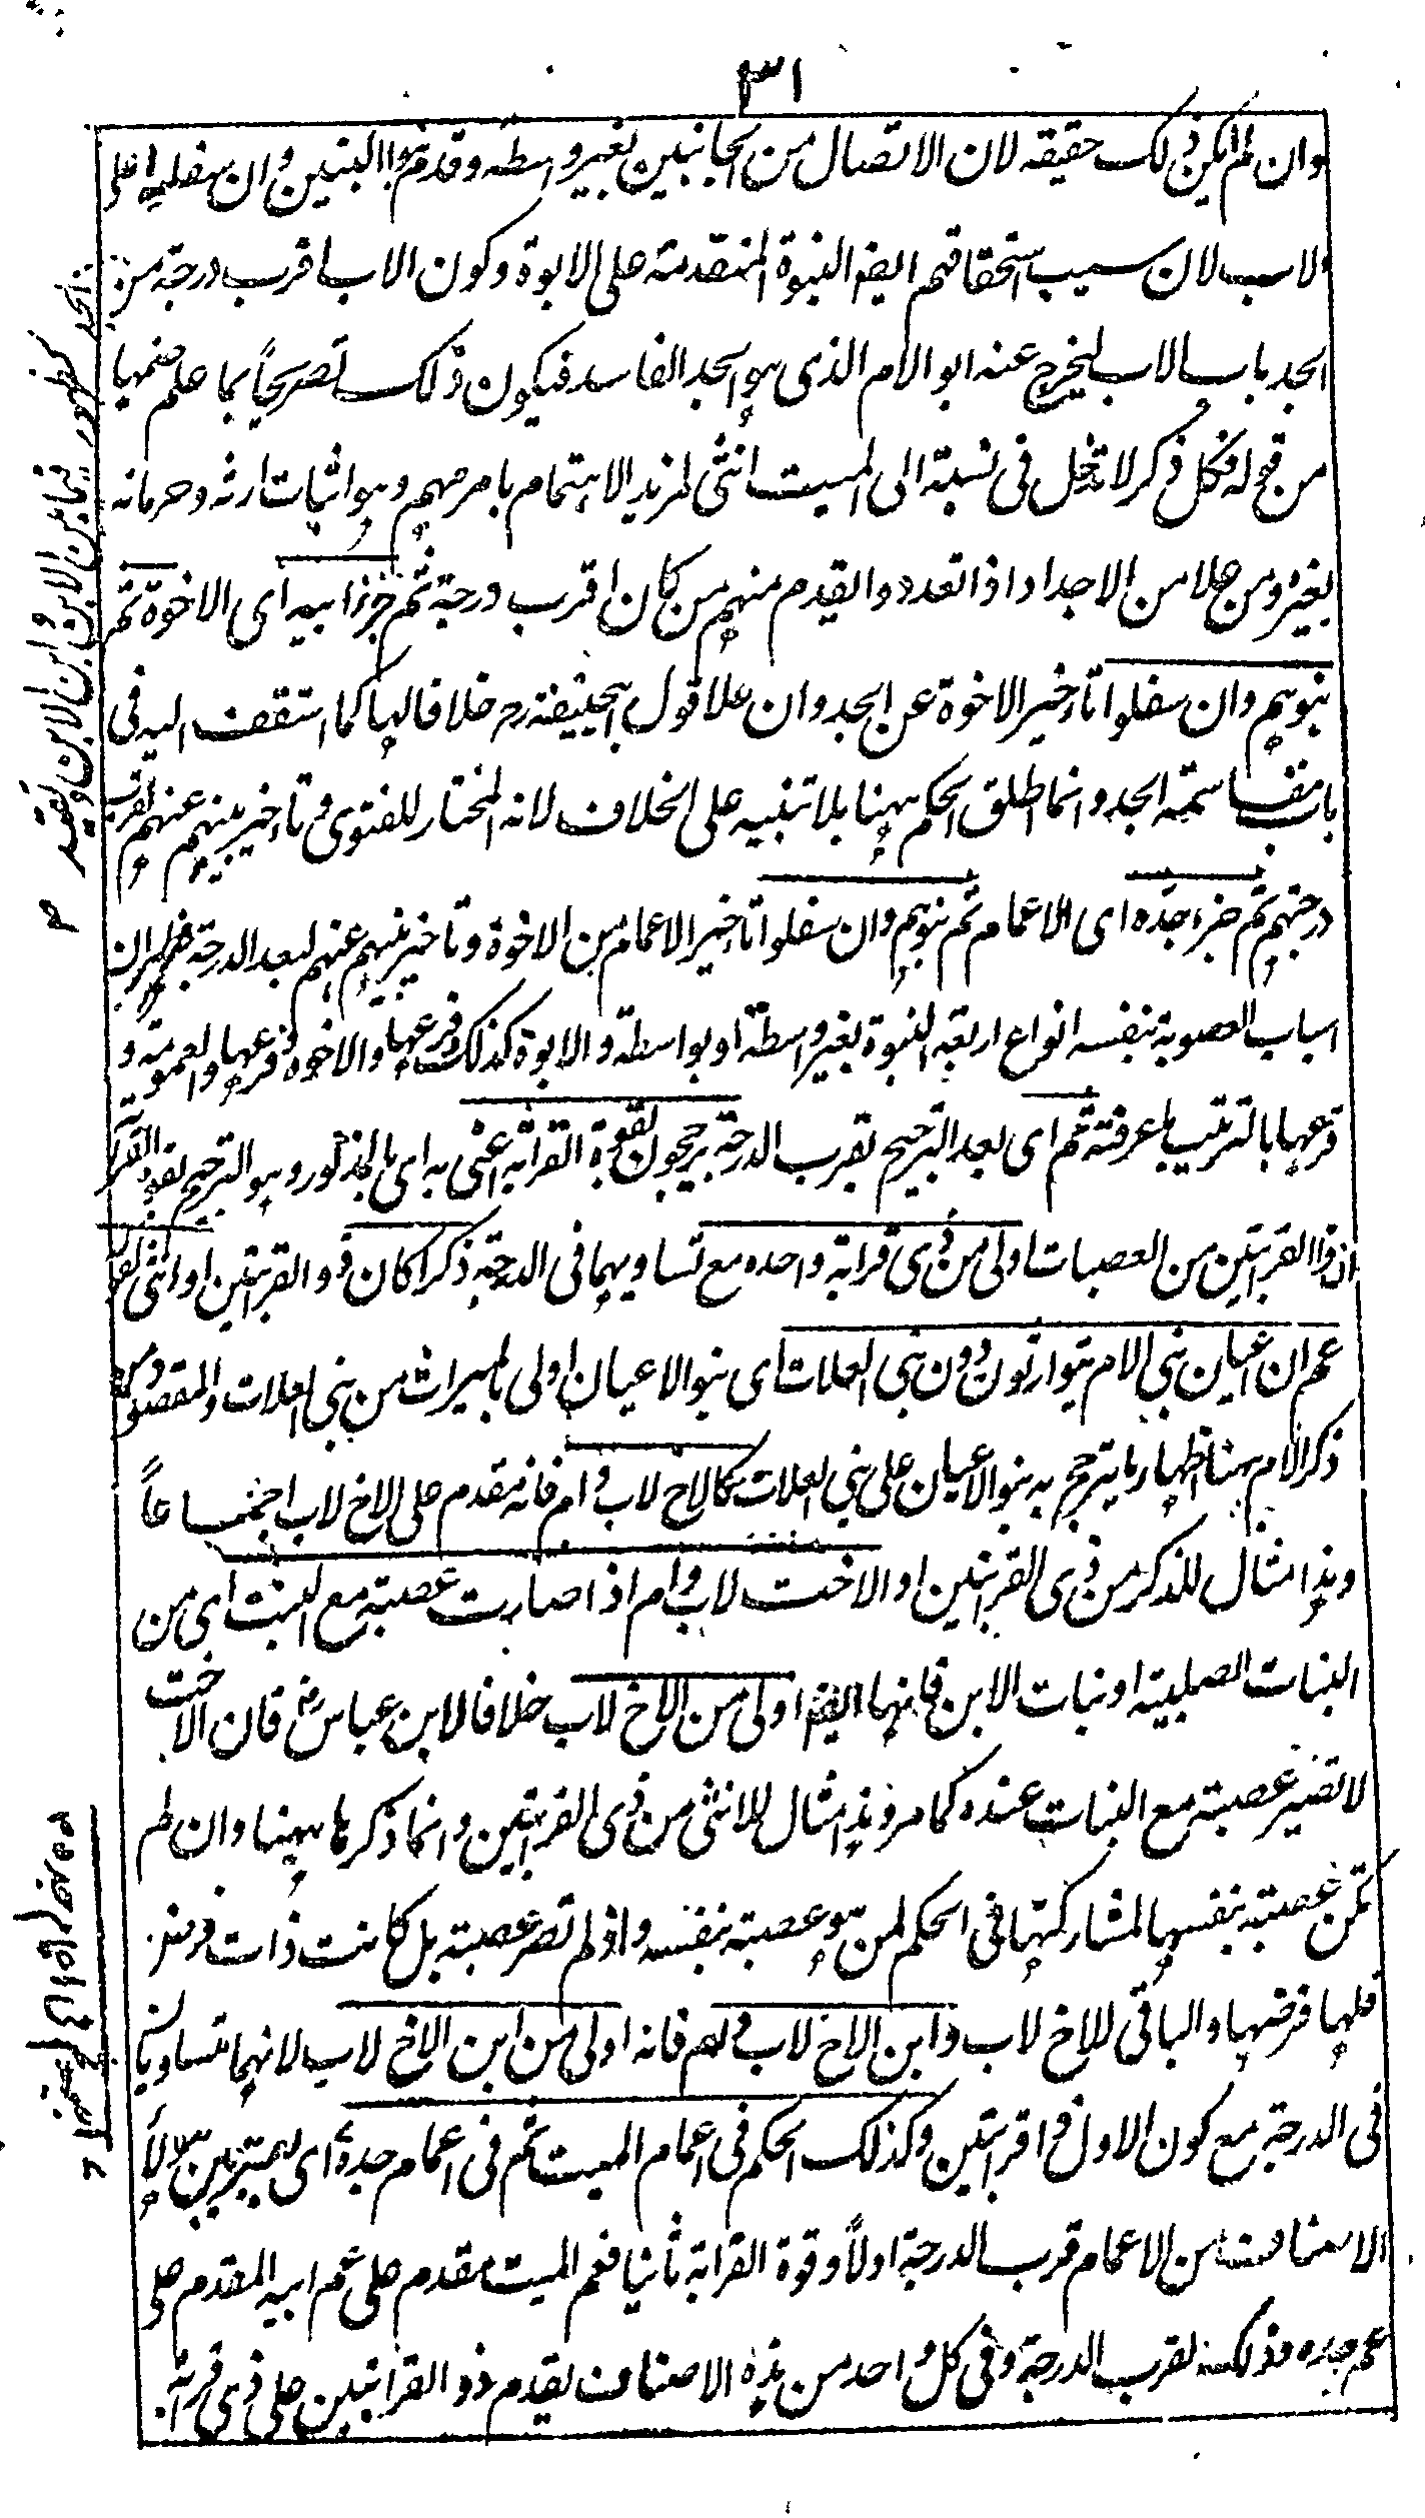 ٣١
وان لم يكن ذلك حقيقة لان الاتصال من الجانبين بغير واسطة وقدم بنوا البنين وان سفلوا على
الاب لان سبب استحقاقهم ايضا البنوة المتقدمة على الابوة وكون الاب اقرب درجة من
الجد باب الاب ليخرج عنه ابو الام الذى هو الجد الفاسد فيكون ذلك تصريحاً بما علم ضمنها
من قوله فكل ذكر لا تدخل فى نسبته الى الميت انثى لمزيد الاهتمام بامر مهم وهو اثبات ارثه وحرمانه
بغيره ومن علا من الاجداد اذا تعدد والقدم منهم من كان اقرب درجة ثم جزء ابيه اى الاخوة ثم
بنوهم وان سفلوا تاخير الاخوة عن الجد وان علا قول ابيحنيفة رح خلافا لهما كما ستقف اليه فى
باب مقاسمة الجد وانما اطلق الحكم ههنا بلا تنبيه على الخلاف لانه المختار للفتوى وتاخير بنيهم عنهم لقرب
درجتهم ثم جزء جده اى الاعمام ثم بنوهم وان سفلوا تاخير الاعمام من الاخوة وتاخير بنيهم عنهم لبعد الدرجة فظهر ان
اسباب العصوبة بنفسه انواع اربعة البنوة بغير واسطة او بواسطة والابوة كذلك وفرعها والاخوة وفرعها والعمومة و
فرعها بالترتيب ما عرفته ثم اى بعد الترجيح بقرب الدرجة يرجحون بقوة القرابة اعنى به اى بالمذكور وهو الترجيح بقوة القرابة
ان ذا القرابتين من العصبات اولى من ذى قرابة واحده مع تساويهما فى الدرجة ذكرا كان ذو القرابتين او انثى لقوله
عم ان اعيان بنى الام يتوارثون دون بنى العلات اى بنو الاعيان اولى بالميراث من بنى العلات والمقصود من
ذكر الام ههنا اظهار ما يترجح به بنو الاعيان على بنى العلات كالاخ لاب وام فانه مقدم على الاخ لاب اجماعاً
وهذا مثال للذكر من ذى القرابتين او الاخت لاب وام اذا صارت عصبة مع البنت اى من
البنات الصلبية او بنات الابن فانها ايضا اولى من الاخ لاب خلافا لابن عباس رض فان الاخت
لا تصير عصبة مع البنات عنده كما مر وهذا مثال للانثى من ذى القرابتين وانما ذكرها ههنا وان لم
تكن عصبة بنفسها لمشاركتها فى الحكم لمن هو عصبة بنفسه واذا لم تصر عصبة بل كانت ذات فرض
فلها فرضها والباقى للاخ لاب وابن الاخ لاب وام فانه اولى من ابن الاخ لاب لانهما متساويان
فى الدرجة مع كون الاول ذا قرابتين وكذلك الحكم فى اعمام الميت ثم فى اعمام جده اى يعتبر بين هؤلاء
الاصناف من الاعمام قرب الدرجة اولاً وقوة القرابة ثانيا فعم الميت مقدم على عم ابيه المقدم على
عم جده وذلك لقرب الدرجة وفى كل واحد من هذه الاصناف يقدم ذو القرابتين على ذى قرابة
فيما بين الابن وابن الابن